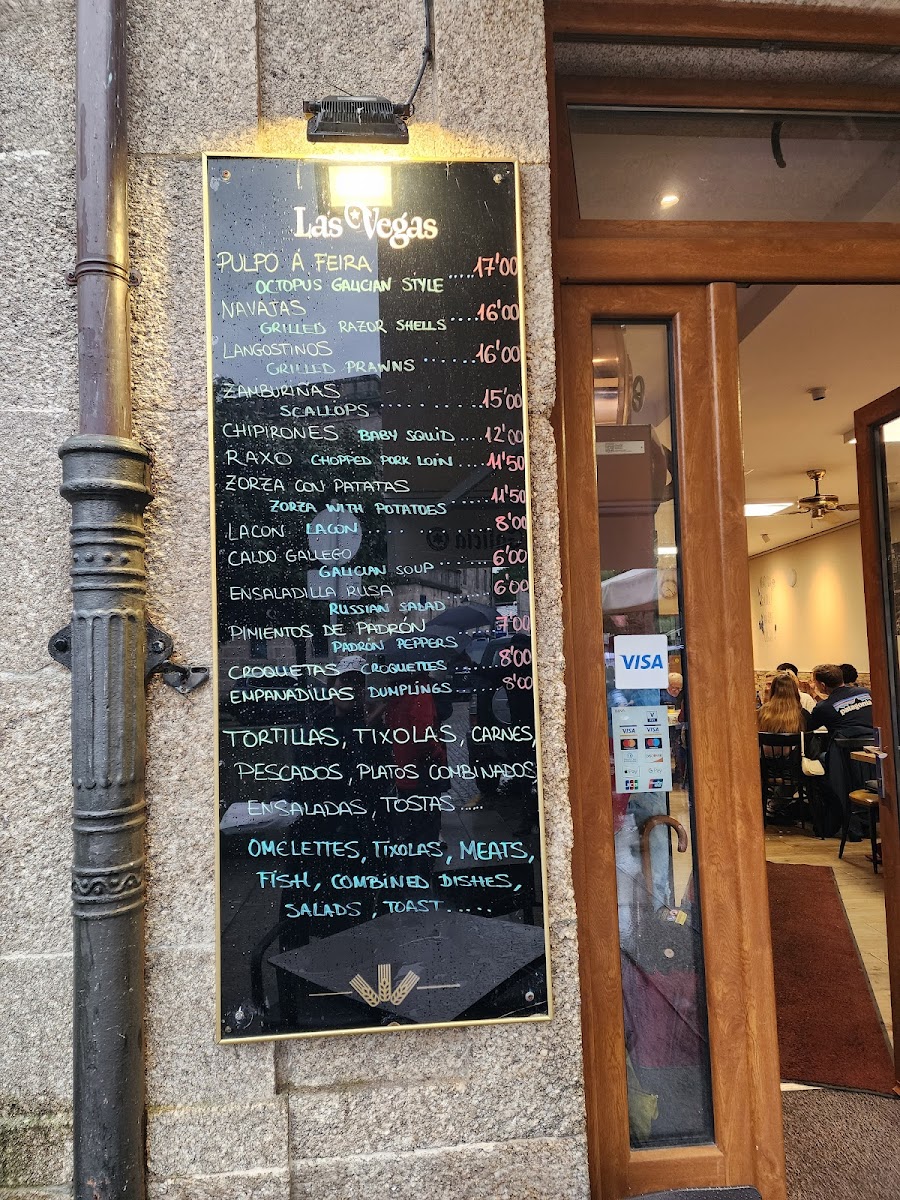 Las Vegas
PULPO A FEIRA
OCTOPUS GALICIAN STYLE ..... 17'00
NAVAJAS
GRILLED RAZOR SHELLS .... 16'00
LANGOSTINOS
GRILLED PRAWNS ...... 16'00
ZAMBURIÑAS
SCALLOPS .......... 15'00
CHIPIRONES BABY SQUID .... 12'00
RAXO CHOPPED PORK LOIN .... 11'50
ZORZA CON PATATAS
ZORZA WITH POTATOES ..... 11'50
LACON LACON .......... 8'00
CALDO GALLEGO
GALICIAN SOUP ...... 6'00
ENSALADILLA RUSA ....... 6'00
RUSSIAN SALAD
PIMIENTOS DE PADRÓN ..... 7'00
PADRÓN PEPPERS
CROQUETAS CROQUETTES ..... 8'00
EMPANADILLAS DUMPLINGS ..... 8'00
TORTILLAS, TIXOLAS, CARNES,
PESCADOS, PLATOS COMBINADOS
ENSALADAS, TOSTAS .....
OMELETTES, TIXOLAS, MEATS,
FISH, COMBINED DISHES,
SALADS, TOAST .....
VISA
VISA VISA
G Pay
patagonia